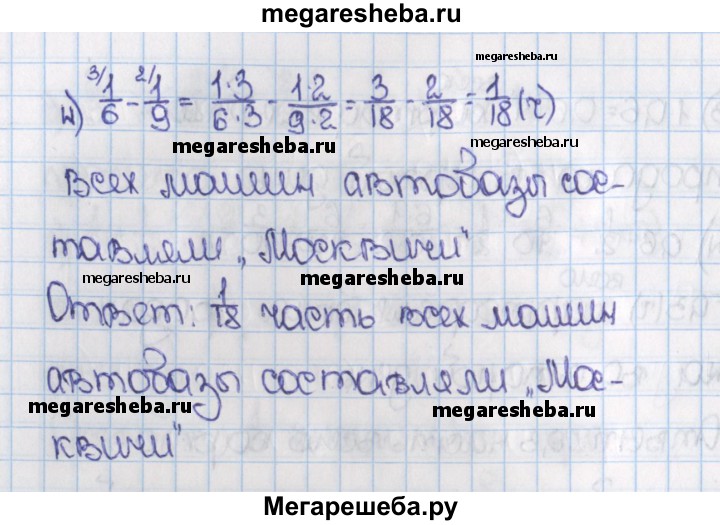 megaresheba.ru
и) ³⁄1/6 - ²⁄1/9 = 1·3/6·3 - 1·2/9·2 = 3/18 - 2/18 = 1/18 (ч)
megaresheba.ru
megaresheba.ru
всех машин автобазы сос-
тавляли „Москвичи"
megaresheba.ru
megaresheba.ru
Ответ: 1/18 часть всех машин
автобазы составляли „Мос-
megaresheba.ru
megaresheba.ru
квичи"
Мегарешеба.ру